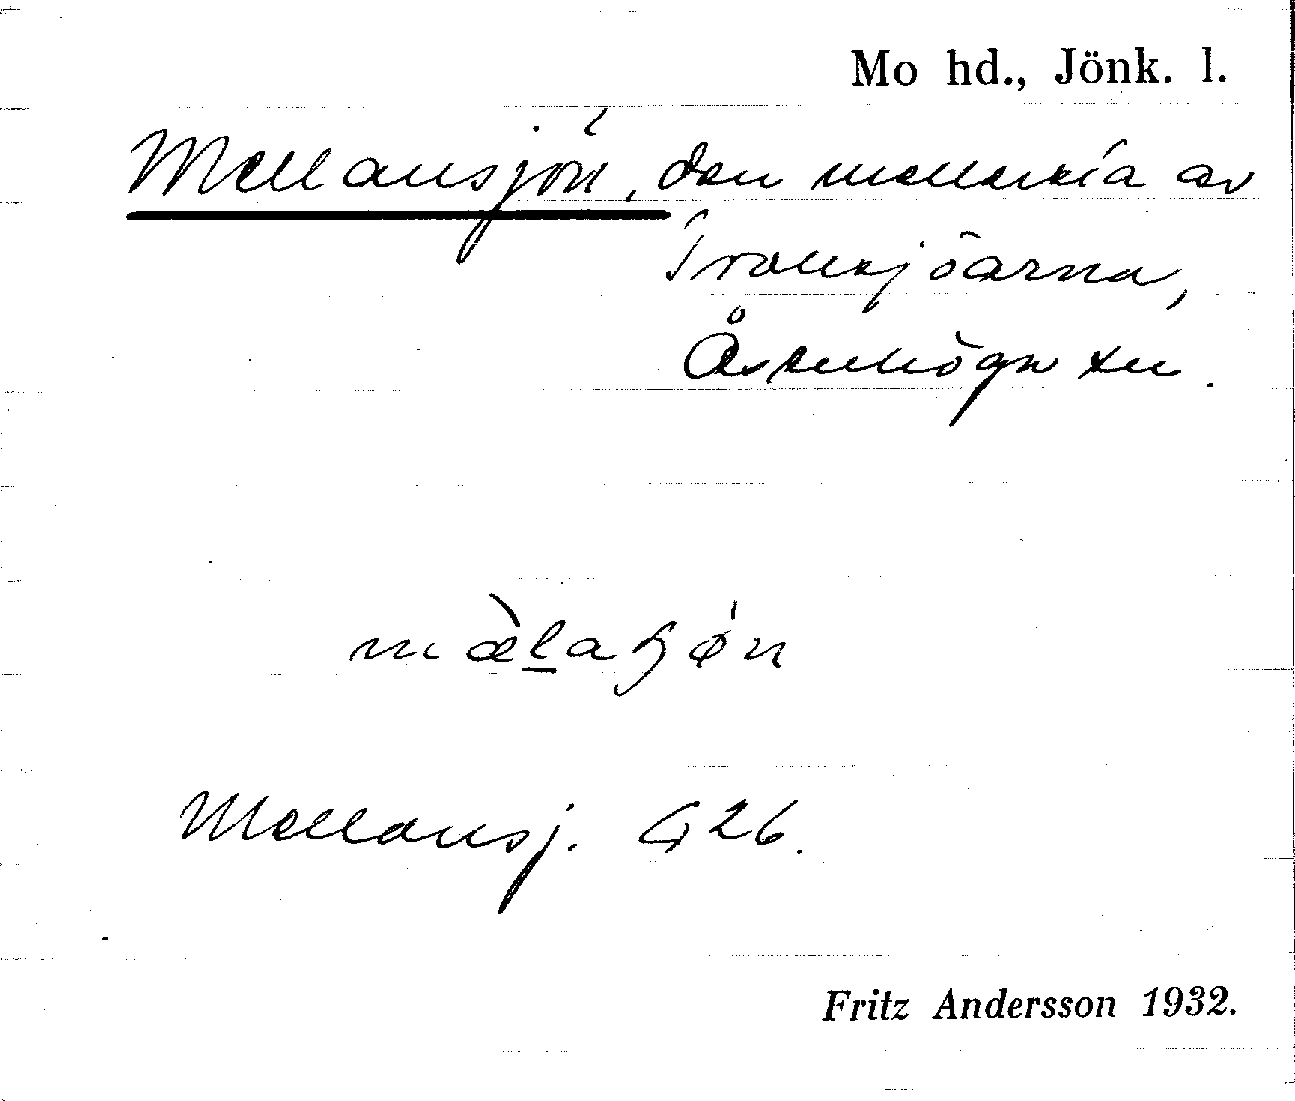 Mo hd., Jönk. l.
Mellansjön, den mellersta av
Trollsjöarna,
Åsenhöga sn.
mæ̀laʃǿn
Mellansj. G 26.
Fritz Andersson 1932.